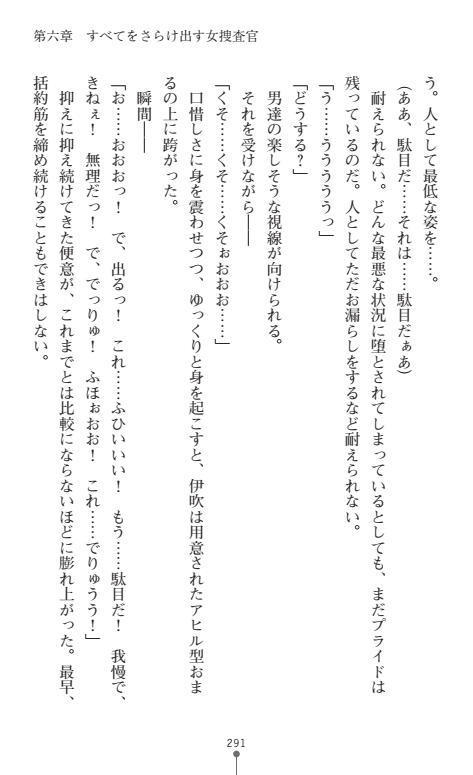 第六章　すべてをさらけ出す女捜査官
う。人として最低な姿を……。
（ああ、駄目だ……それは……駄目だぁあ）
　耐えられない。どんな最悪な状況に堕とされてしまっているとしても、まだプライドは
残っているのだ。人としてただお漏らしをするなど耐えられない。
「う……うううううっ」
「どうする？」
　男達の楽しそうな視線が向けられる。
　それを受けながら――
「くそ……くそ……くそぉおおお……」
　口惜しさに身を震わせつつ、ゆっくりと身を起こすと、伊吹は用意されたアヒル型おま
るの上に跨がった。
　瞬間――
「お……おおおっ！　で、出るっ！　これ……ふひいいい！　もう……駄目だ！　我慢で、
きねぇ！　無理だっ！　で、でっりゅ！　ふほぉおお！　これ……でりゅうう！」
　抑えに抑え続けてきた便意が、これまでとは比較にならないほどに膨れ上がった。最早、
括約筋を締め続けることもできはしない。
291